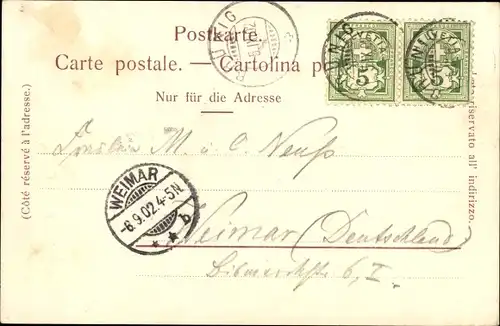 Postkarte.
Carte postale. — Cartolina
Nur für die Adresse
(Côté réservé à l'adresse.)
riservato all' indirizzo.
HELVETIA
5
5
WEIMAR
-6.9.02.4-5N
* * b
Fräulein M. u. C. Neuß
Weimar (Deutschland)
Bismarckstr 6, I.